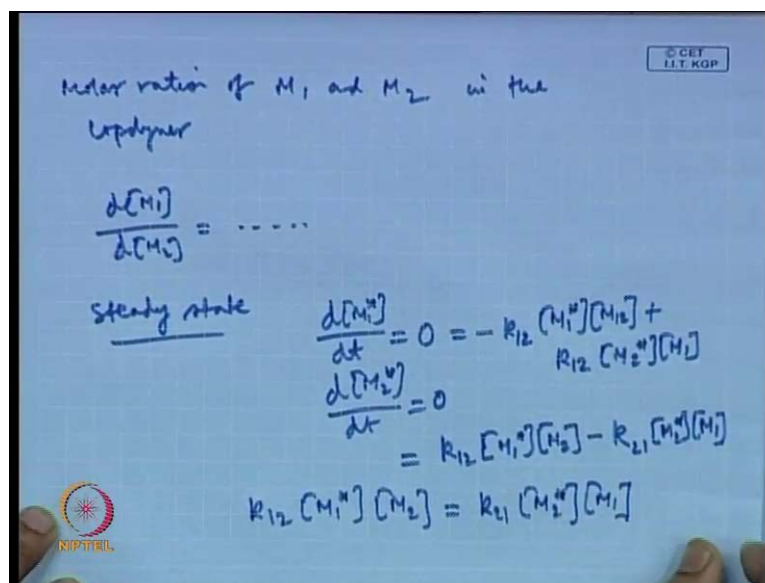 © CET
I.I.T. KGP
Molar ration of M₁ and M₂ in the
copolymer
d[M₁]/d[M₂] = .....
Steady state
d[M₁*]/dt = 0 = - k₁₂ [M₁*][M₁₂] +
k₁₂ [M₂*][M₁]
d[M₂*]/dt = 0
= k₁₂ [M₁*][M₂] - k₂₁ [M₂*][M₁]
k₁₂ [M₁*][M₂] = k₂₁ [M₂*][M₁]
NPTEL